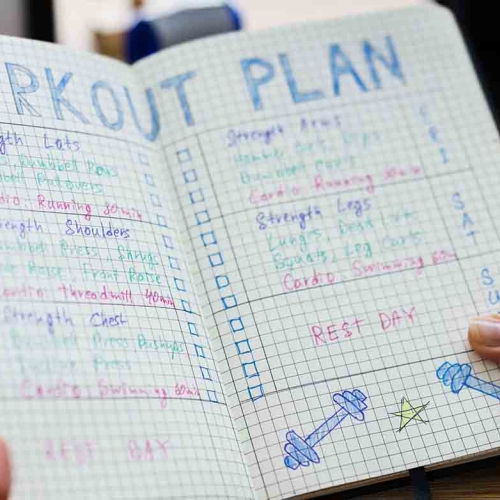 RKOUT PLAN
gth Lats
Dumbbell Rows
Pullovers
dio: Running 30min
rength Shoulders
mbbell Press, Shrugs
Raise, Front Raise
Cardio: Threadmill 40min
Strength Chest
Press Pushups
Press
Cardio: Swimming 60min
REST DAY
Strength Arms
Hammer Curls, Dips
Dumbbell Curls
Cardio: Running 30min
F
R
I
Strength Legs
Lunges, Dead
Squats, Leg Curls
Cardio: Swimming 60m
S
A
T
REST DAY
S
U